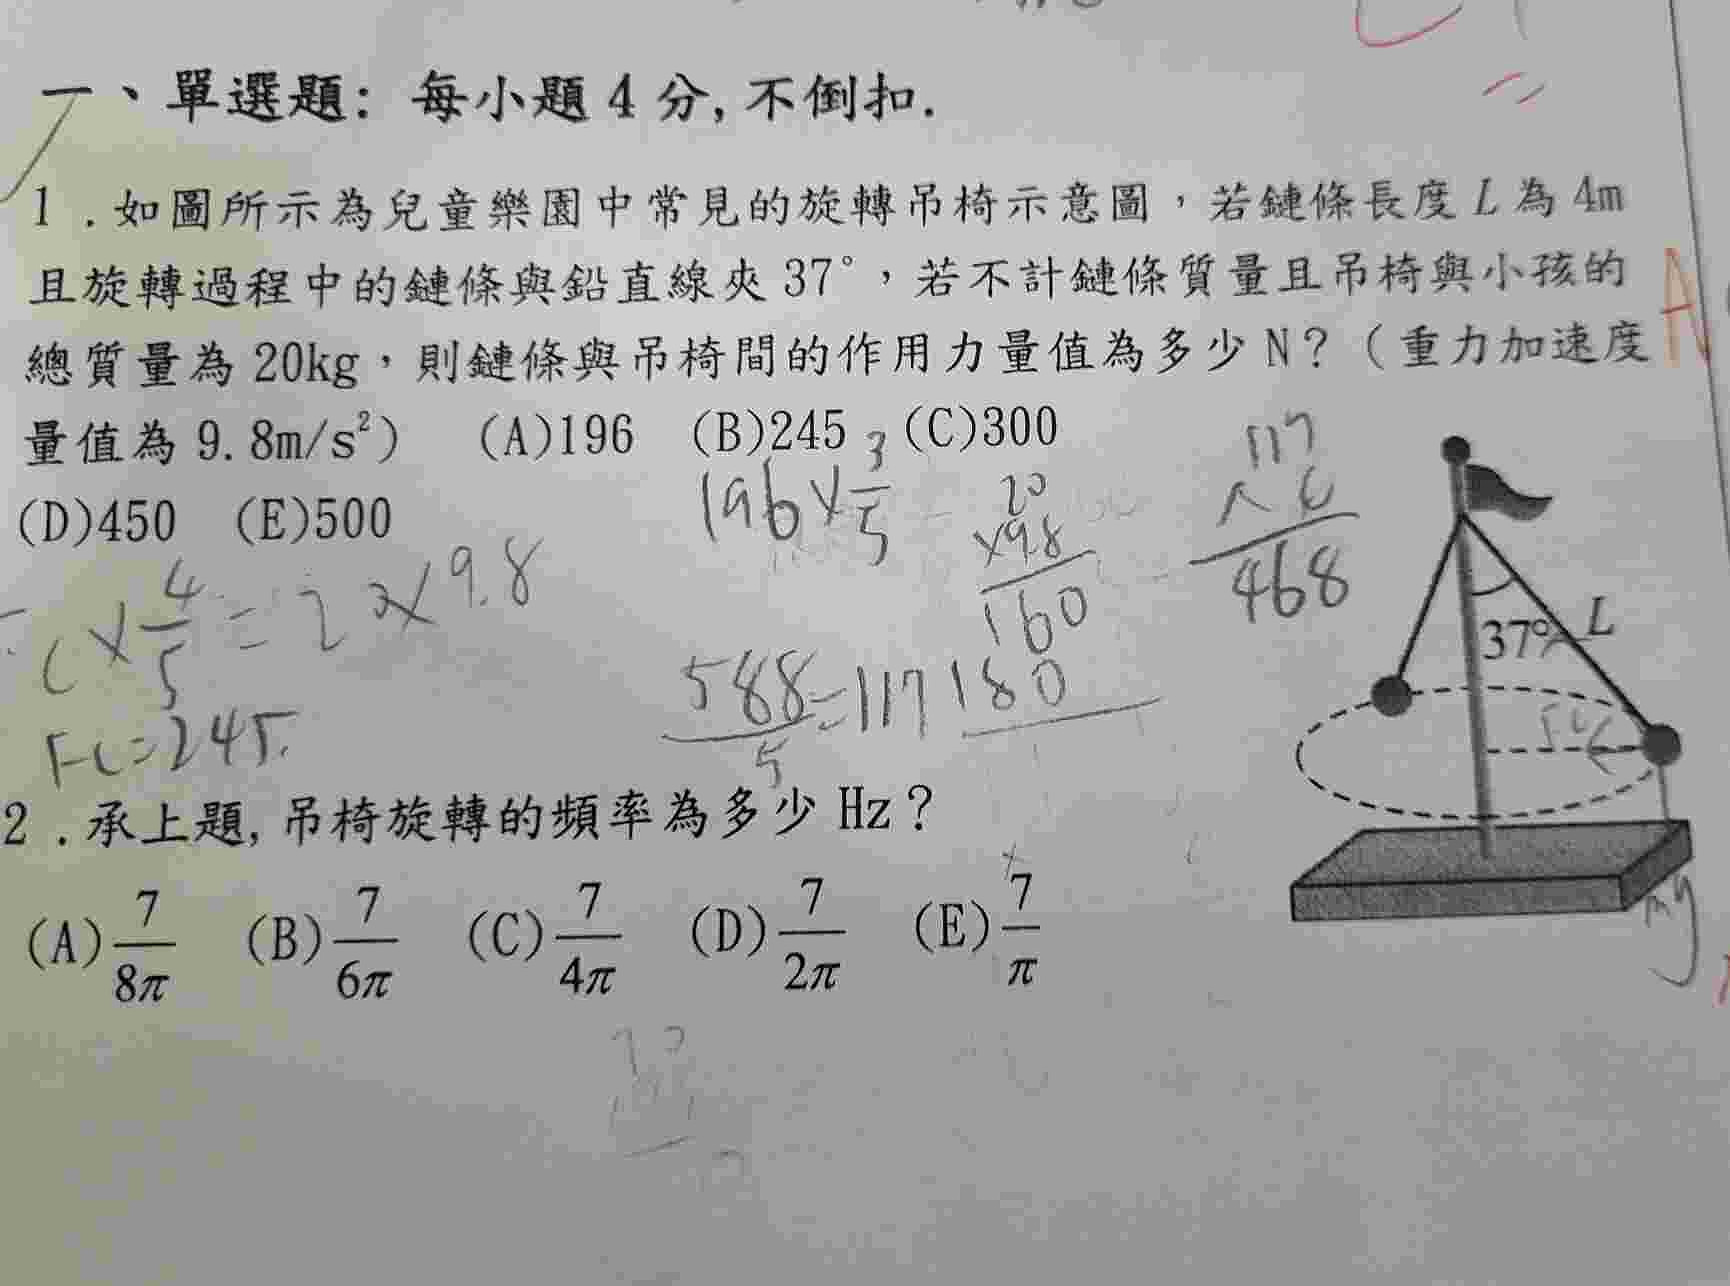 一、單選題: 每小題 4 分, 不倒扣.
1 . 如圖所示為兒童樂園中常見的旋轉吊椅示意圖，若鏈條長度 L 為 4m
且旋轉過程中的鏈條與鉛直線夾 37°，若不計鏈條質量且吊椅與小孩的
總質量為 20kg，則鏈條與吊椅間的作用力量值為多少 N？（重力加速度
量值為 9.8m/s²） (A)196 (B)245 (C)300
(D)450 (E)500
196×3/5
20
×9.8
160
180
117
×4
468
×4/5=20×9.8
=245
588/5=117
37°
L
mg
2 . 承上題, 吊椅旋轉的頻率為多少 Hz？
(A) 7/8π (B) 7/6π (C) 7/4π (D) 7/2π (E) 7/π
A